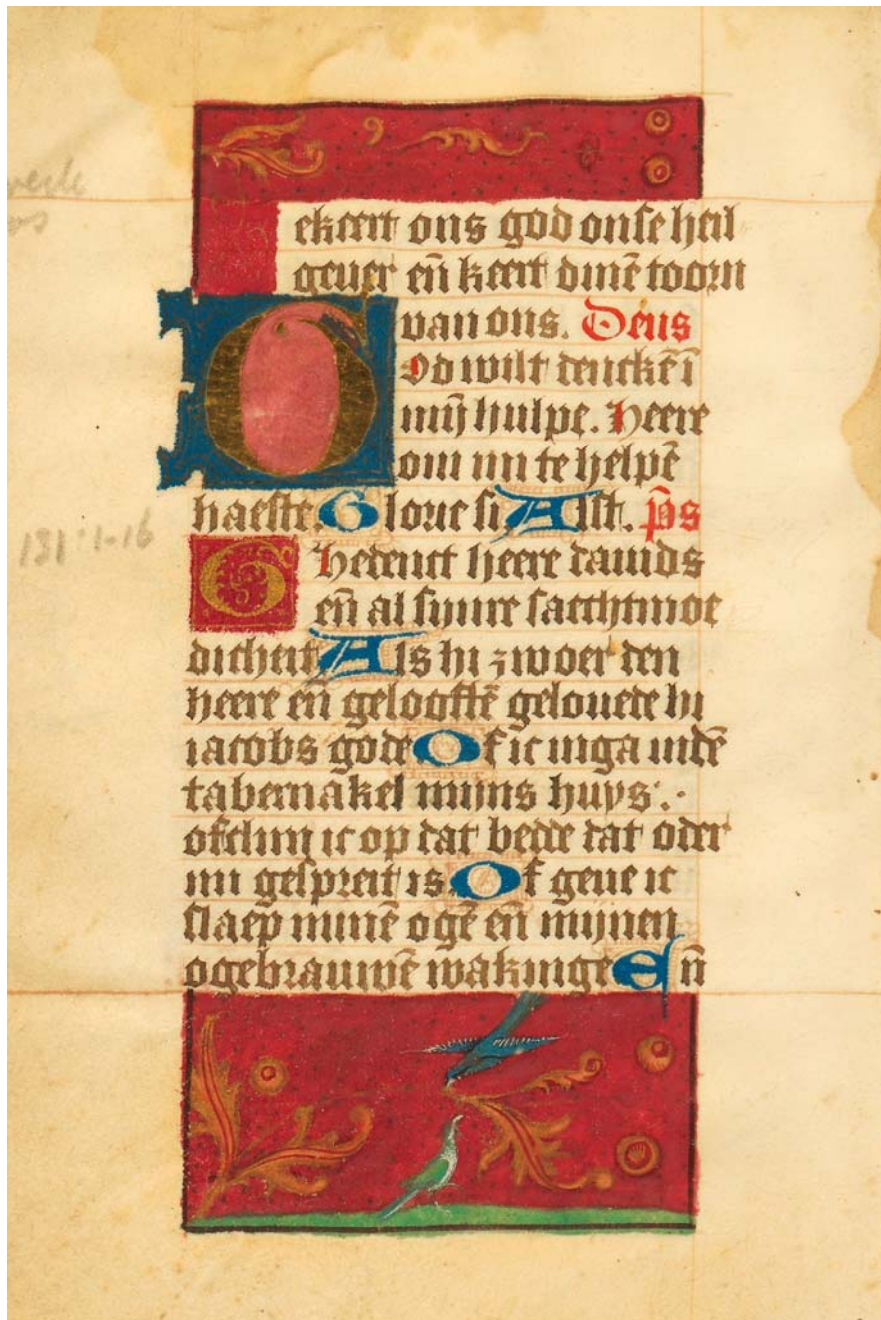 ekeert ons god onse heil
geuer en̄ keert dinē toorn
van ons. Deus
od wilt denckē ī
mij hulpe. Heere
om mi te helpē
haeste. Glorie si Alst. p̄s
Ghedenct heere dauids
en̄ al sijnre sacchtmoe
dicheit Als hi zwoer den
heere en̄ geloeftē gelouede hi
iacobs gode Of ic inga indē
tabernakel mijns huys :·
ofclim ic op dat bedde dat oder
mi gespreit is Of geue ic
slaep minē ogē en̄ mijnen
ogebrauwē wakinge En̄
131:1-16